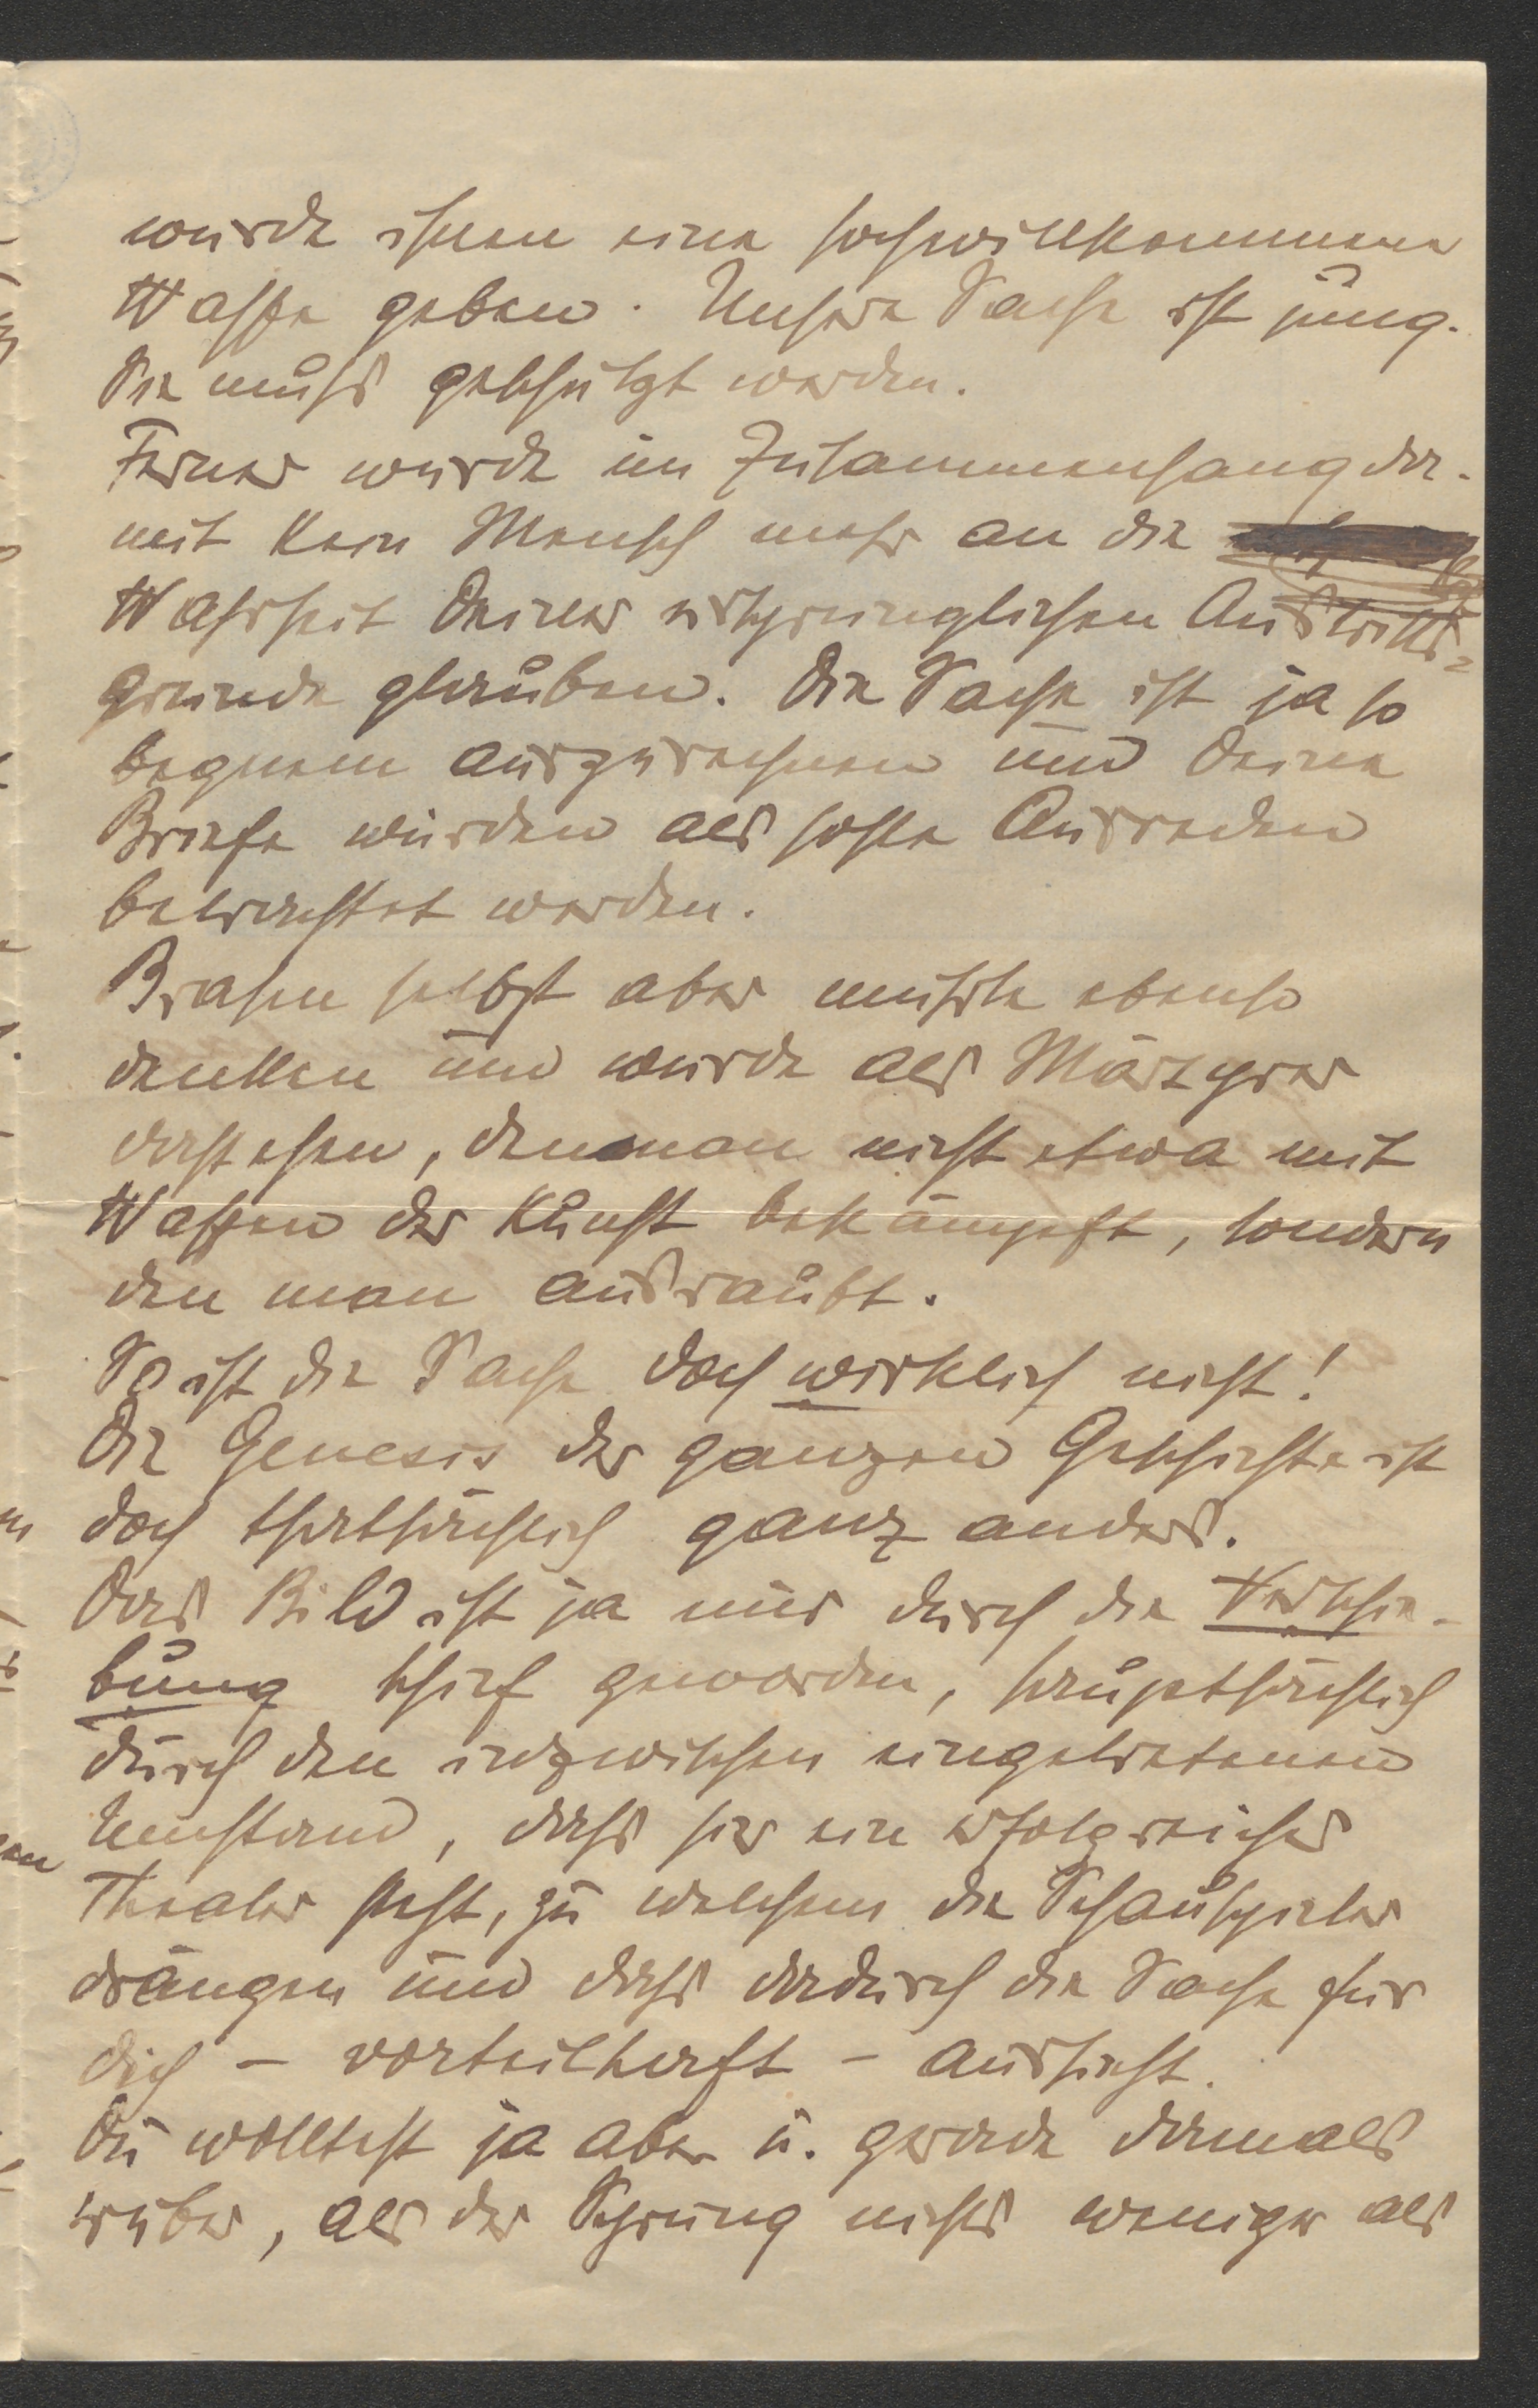 würde ihnen eine hochwillkommene
Waffe geben. Unsere Sache ist jung.
Sie muß geschützt werden.
Ferner würde im Zusammenhang da-
mit kein Mensch mehr an die
Wahrheit Deiner ursprünglichen Austritts-
gründe glauben. Die Sache ist ja so
bequem auszurechnen und Deine
Briefe würden als hohle Ausreden
betrachtet werden.
Brahm selbst aber müßte ebenso
denken und würde als Märtyrer
dastehen, den man nicht etwa mit
Waffen der Kunst bekämpft, sondern
den man ausraubt.
So ist die Sache doch wirklich nicht!
Die Genesis der ganzen Geschichte ist
doch thatsächlich ganz anders.
Das Bild ist ja nur durch die Verschie-
bung schief geworden, hauptsächlich
durch den inzwischen eingetretenen
Umstand, daß hier ein erfolgreiches
Theater steht, zu welchem die Schauspieler
drängen und daß dadurch die Sache für
dich – vorteilhaft – aussieht.
Du wolltest ja aber u. gerade damals
rüber, als der Sprung nichts weniger als